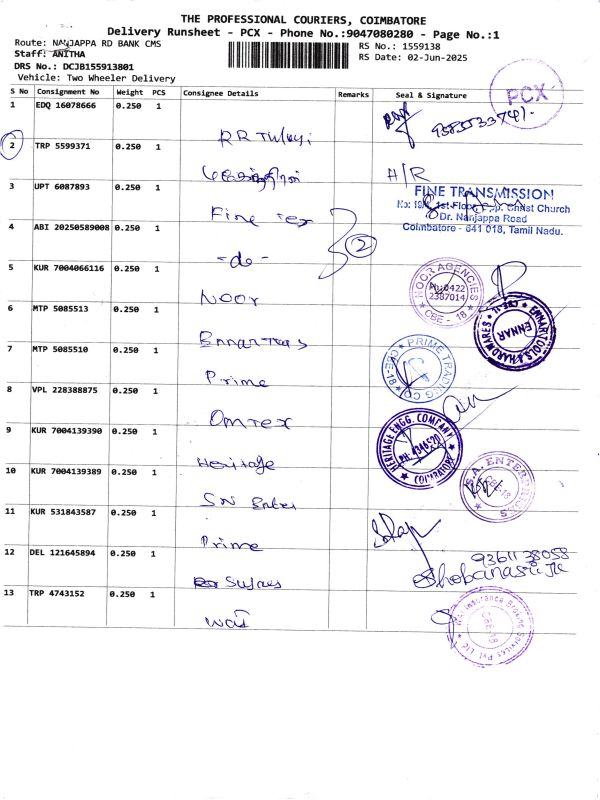 THE PROFESSIONAL COURIERS, COIMBATORE
Delivery Runsheet - PCX - Phone No.:9047080280 - Page No.:1
Route: NANJAPPA RD BANK CMS
RS No.: 1559138
Staff: ANITHA
RS Date: 02-Jun-2025
DRS No.: DCJB155913801
Vehicle: Two Wheeler Delivery
S No Consignment No Weight PCS Consignee Details Remarks Seal & Signature
PCX
1 EDQ 16078666 0.250 1
RR Tulsyi
2 TRP 5599371 0.250 1
A/R
3 UPT 6087893 0.250 1
Fine Tex
FINE TRANSMISSION
1st Floor, Opp. Christ Church
Dr. Nanjappa Road
Coimbatore - 641 018, Tamil Nadu.
4 ABI 20250589008 0.250 1
-do-
2
5 KUR 7004066116 0.250 1
Noor
NOOR AGENCIES
PH:0422
2387014
CBE - 18
6 MTP 5085513 0.250 1
ENNAR TOOLS & HARDWARES
ENNAR
7 MTP 5085510 0.250 1
Prime
PRIME TRADING CO
CBE-18
8 VPL 228388875 0.250 1
Omtex
9 KUR 7004139390 0.250 1
Heritage
HERITAGE ENGG. COMPANY
PH: 4346520
COIMBATORE
10 KUR 7004139389 0.250 1
SN Enter
S.A. ENTERPRISES
CBE-18
11 KUR 531843587 0.250 1
Prime
12 DEL 121645894 0.250 1
9361138058
13 TRP 4743152 0.250 1
Insurance Broking Services Pvt. Ltd
CBE-18